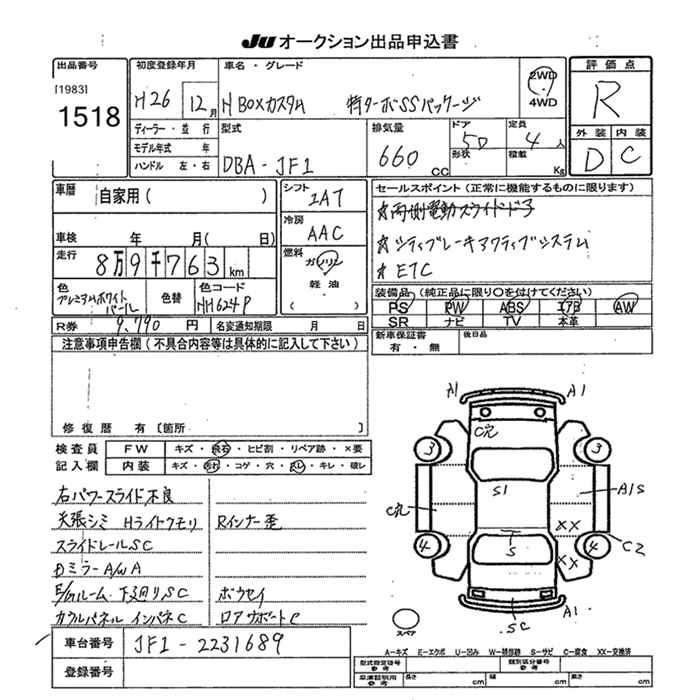 JU オークション出品申込書
出品番号
[1983]
1518
初度登録年月
H26 年 12月
ディーラー・並行
モデル年式 年
ハンドル 左・右
車名・グレード
N BOXカスタム 特ターボSSパッケージ
2WD
・
4WD
型式
DBA-JF1
排気量
660 cc
ドア 5D
形状
定員 4人
積載 Kg
評価点
R
外装 内装
D C
車歴 自家用( )
車検 年 月( 日)
走行 8万9千763 km
色 プレミアムホワイトパール
色替
色コード NH624P
シフト
IAT
冷房
AAC
燃料
ガソリン
軽油
( )
セールスポイント(正常に機能するものに限ります)
★両側電動スライドドア
★シティブレーキアクティブシステム
★ETC
装備品(純正品に限り○を付けてください)
PS PW ABS エアB AW
SR ナビ TV 本革
R券 9,790 円
名変通知期限 月 日
新車保証書
有・無
後日品
注意事項申告欄(不具合内容等は具体的に記入して下さい)
修復歴 有〔箇所 〕
検査員記入欄
FW キズ・飛石・ヒビ割・リペア跡・×要
内装 キズ・汚れ・コゲ・穴・スレ・キレ・破レ
右パワースライド不良
天張シミ Hライトクモリ Rインナー歪
スライドレールSC
DミラーAWA
E/Gルーム 下廻りSC ボウセイ
カウルパネル インパネC ロアサポートC
車台番号 JF1-2231689
登録番号
A1 A1
C穴
3 3
S1
A1S
C穴
XX
4 4
S
XX
C2
SC
A1
スペア
A-キズ E-エクボ U-凹み W-補修跡 S-サビ C-腐食 XX-交換済
型式指定番号
参考
類別区分番号
参考
車庫証明用
参考
長さ cm
幅 cm
高さ cm